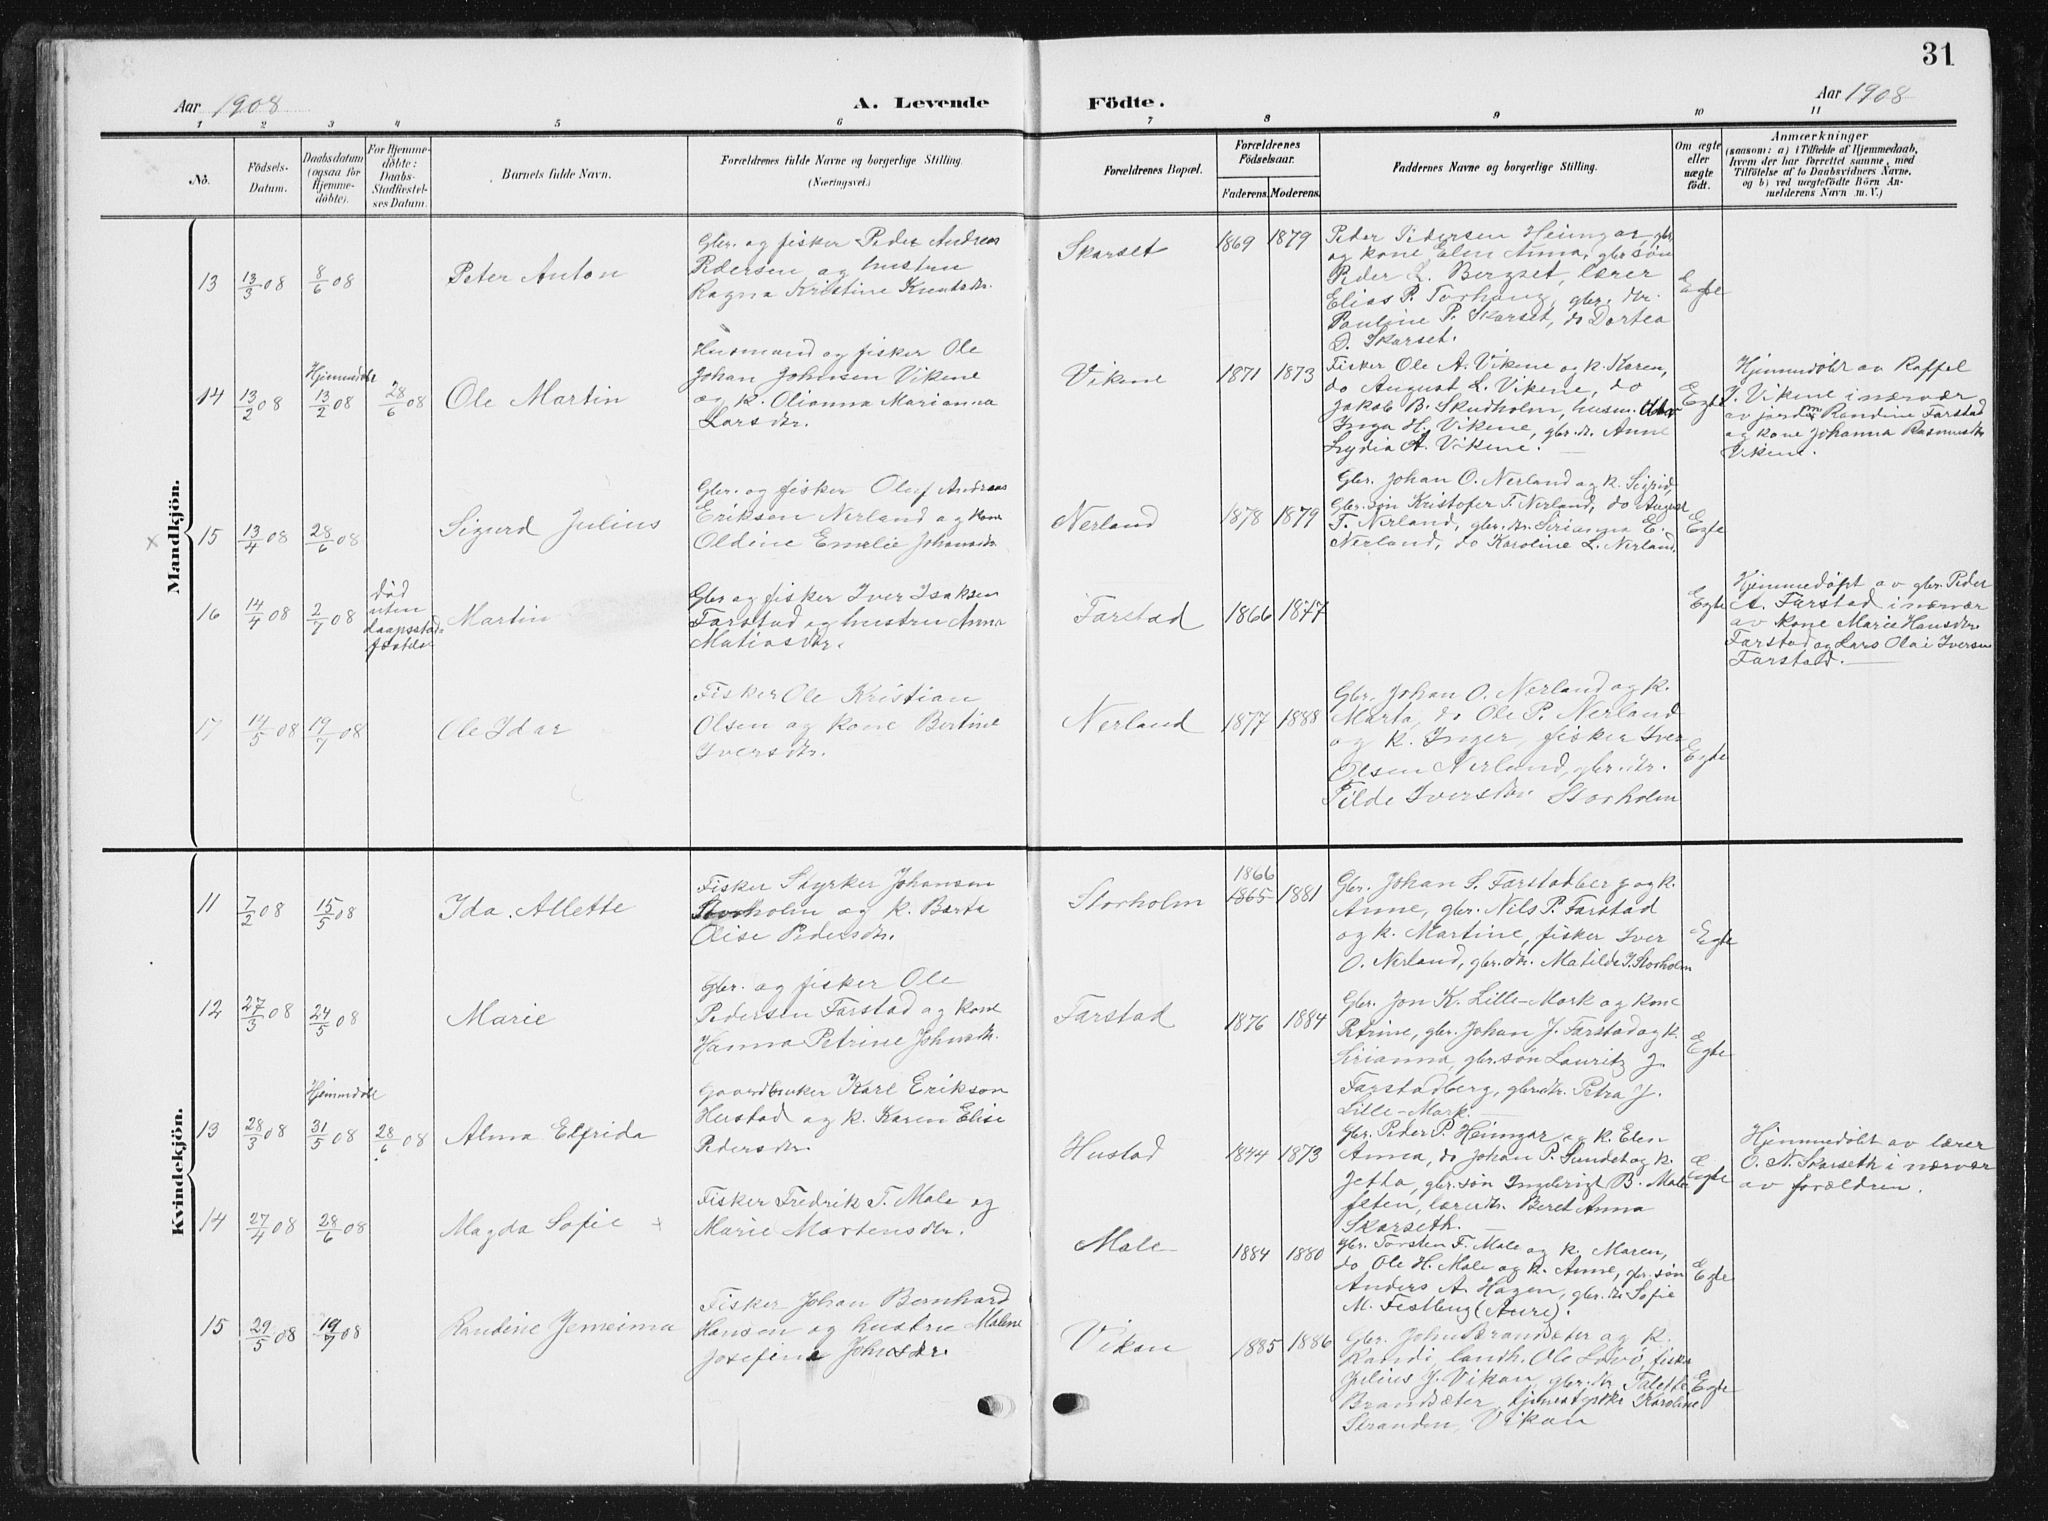 31
Aar 1908
A. Levende Födte.
Aar 1908
1 2 3 4 5 6 7 8 9 10 11
No.
Födsels-Datum.
Daabsdatum (ogsaa for Hjemme-döbte).
For Hjemme-döbte: Daabs-Stadfæstel-ses Datum.
Barnets fulde Navn.
Forældrenes fulde Navne og borgerlige Stilling.
(Næringsvei.)
Forældrenes Bopæl.
Forældrenes Födselsaar.
Faderens. Moderens.
Faddernes Navne og borgerlige Stilling.
Om ægte eller uægte födt.
Anmærkninger
(saasom: a) i Tilfælde af Hjemmedaab,
hvem der har forrettet samme, med
Tilföielse af to Daabsvidners Navne,
og b) ved uægtefödte Börn An-
melderens Navn m. V.)
Mandkjön.
13 13/3 08 8/6 08 Peter Anton
Gbr. og fisker Peder Andreas
Pedersen og hustru
Ragna Kristine Knutsdtr.
Skarset 1869 1879
Peder Pedersen Heingar, gbr.
og kone Elen Anna, gbr. søn
Peder L. Bergset, lærer
Elias P. Torhaug, gbr. dtr.
Pauline P. Skarset, do Dortea
D. Skarset.
Egte
14 13/2 08 Hjemmedøbt 13/2 08 28/6 08 Ole Martin
Husmand og fisker Ole
Johan Johnsen Vikene
og k. Olianna Marianna
Larsdtr.
Vikene 1871 1873
Fisker Ole A. Vikene og k. Karen,
do August L. Vikene, do
Jakob B. Skudholm, husm. dtr
Inga H. Vikene, gbr. dr. Anne
Lydia A. Vikene.
Egte
Hjemmedøbt av Raffel
J. Vikene i nærvær
av jordm Randine Farstad
og kone Johanna Rasmusdtr
Vikene.
x 15 13/4 08 28/6 08 Sigurd Julius
Gbr. og fisker Oluf Andreas
Eriksen Nerland og kone
Oldine Emelie Johansdtr
Nerland 1878 1879
Gbr. Johan O. Nerland og k. Sigrid,
Gbr. søn Kristofer T. Nerland, do August
T. Nerland, gbr. dtr. Serianna E.
Nerland, do Karoline L. Nerland
Egte
16 14/4 08 2/7 08 død uten daapsstadfæstelse Martin
Gbr og fisker Iver Isaksen
Farstad og hustru Anna
Matiasdtr.
Farstad 1866 1877
Egte
Hjemmedøpt av gbr. Peder
A. Farstad i nærvær
av kone Marie Hansdtr
Farstad og Lars Olai Iversen
Farstad.
17 14/5 08 19/7 08 Ole Idar
Fisker Ole Kristian
Olsen og kone Bertine
Iversdtr.
Nerland 1877 1888
Gbr. Johan O. Nerland og k.
Marta, do Ole P. Nerland
og k. Inger, fisker Iver
Olsen Nerland, gbr. dtr.
Tilde Iversdtr Storholm
Egte
Kvindekjön.
11 7/2 08 15/5 08 Ida Allette
Fisker Styrker Johansen
Storholm og k. Berta
Olise Pedersdtr.
Storholm 1866 1865 1881
Gbr. Johan S. Farstadberg og k.
Anne, gbr. Nils P. Farstad
og k. Martine, fisker Iver
O. Nerland, gbr. dtr. Matilde I. Storholm
Egte
12 27/3 08 24/5 08 Marie
Gbr. og fisker Ole
Pedersen Farstad og kone
Hanna Petrine Johnsdtr.
Farstad 1876 1884
Gbr. Jon K. Lille-Mork og kone
Petrine, gbr. Johan J. Farstad og k.
Serianna, gbr. søn Lauritz J.
Farstadberg, gbr. dtr. Petra J.
Lille-Mork.
Egte
13 28/3 08 Hjemmedøbt 31/5 08 28/6 08 Alma Elfrida
Gaardbruker Karl Erikson
Hustad og k. Karen Elise
Pedersdtr.
Hustad 1844 1873
Gbr. Peder P. Heingar og k. Elen
Anna, do Johan P. Sundet og k.
Jetta, gbr. søn Ingebrigt B. Male
feten, lærerdtr. Beret Anna
Skarseth.
Egte
Hjemmedøbt av lærer
O. N. Skarseth i nærvær
av forældren.
14 27/4 08 28/6 08 Magda Sofie x
Fisker Fredrik T. Male og
Marie Mortensdtr.
Male 1884 1880
Gbr. Torsten F. Male og k. Maren,
do Ole H. Male og k. Anne, gbr. søn
Anders A. Hagen, gbr. dr Sofie
M. Festbug (Aure).
Egte
15 29/5 08 19/7 08 Randine Jemeima
Fisker Johan Bernhard
Hansen og hustru Malene
Josefine Johnsdtr.
Vikan 1885 1886
Gbr. John Strandsæter og k.
Randi, landh. Ole Løvø, fisker
Julius J. Vikan, gbr. dtr. Talette
Brandsæter, tjenestepike Karoline
Stranden, Vikan
Egte